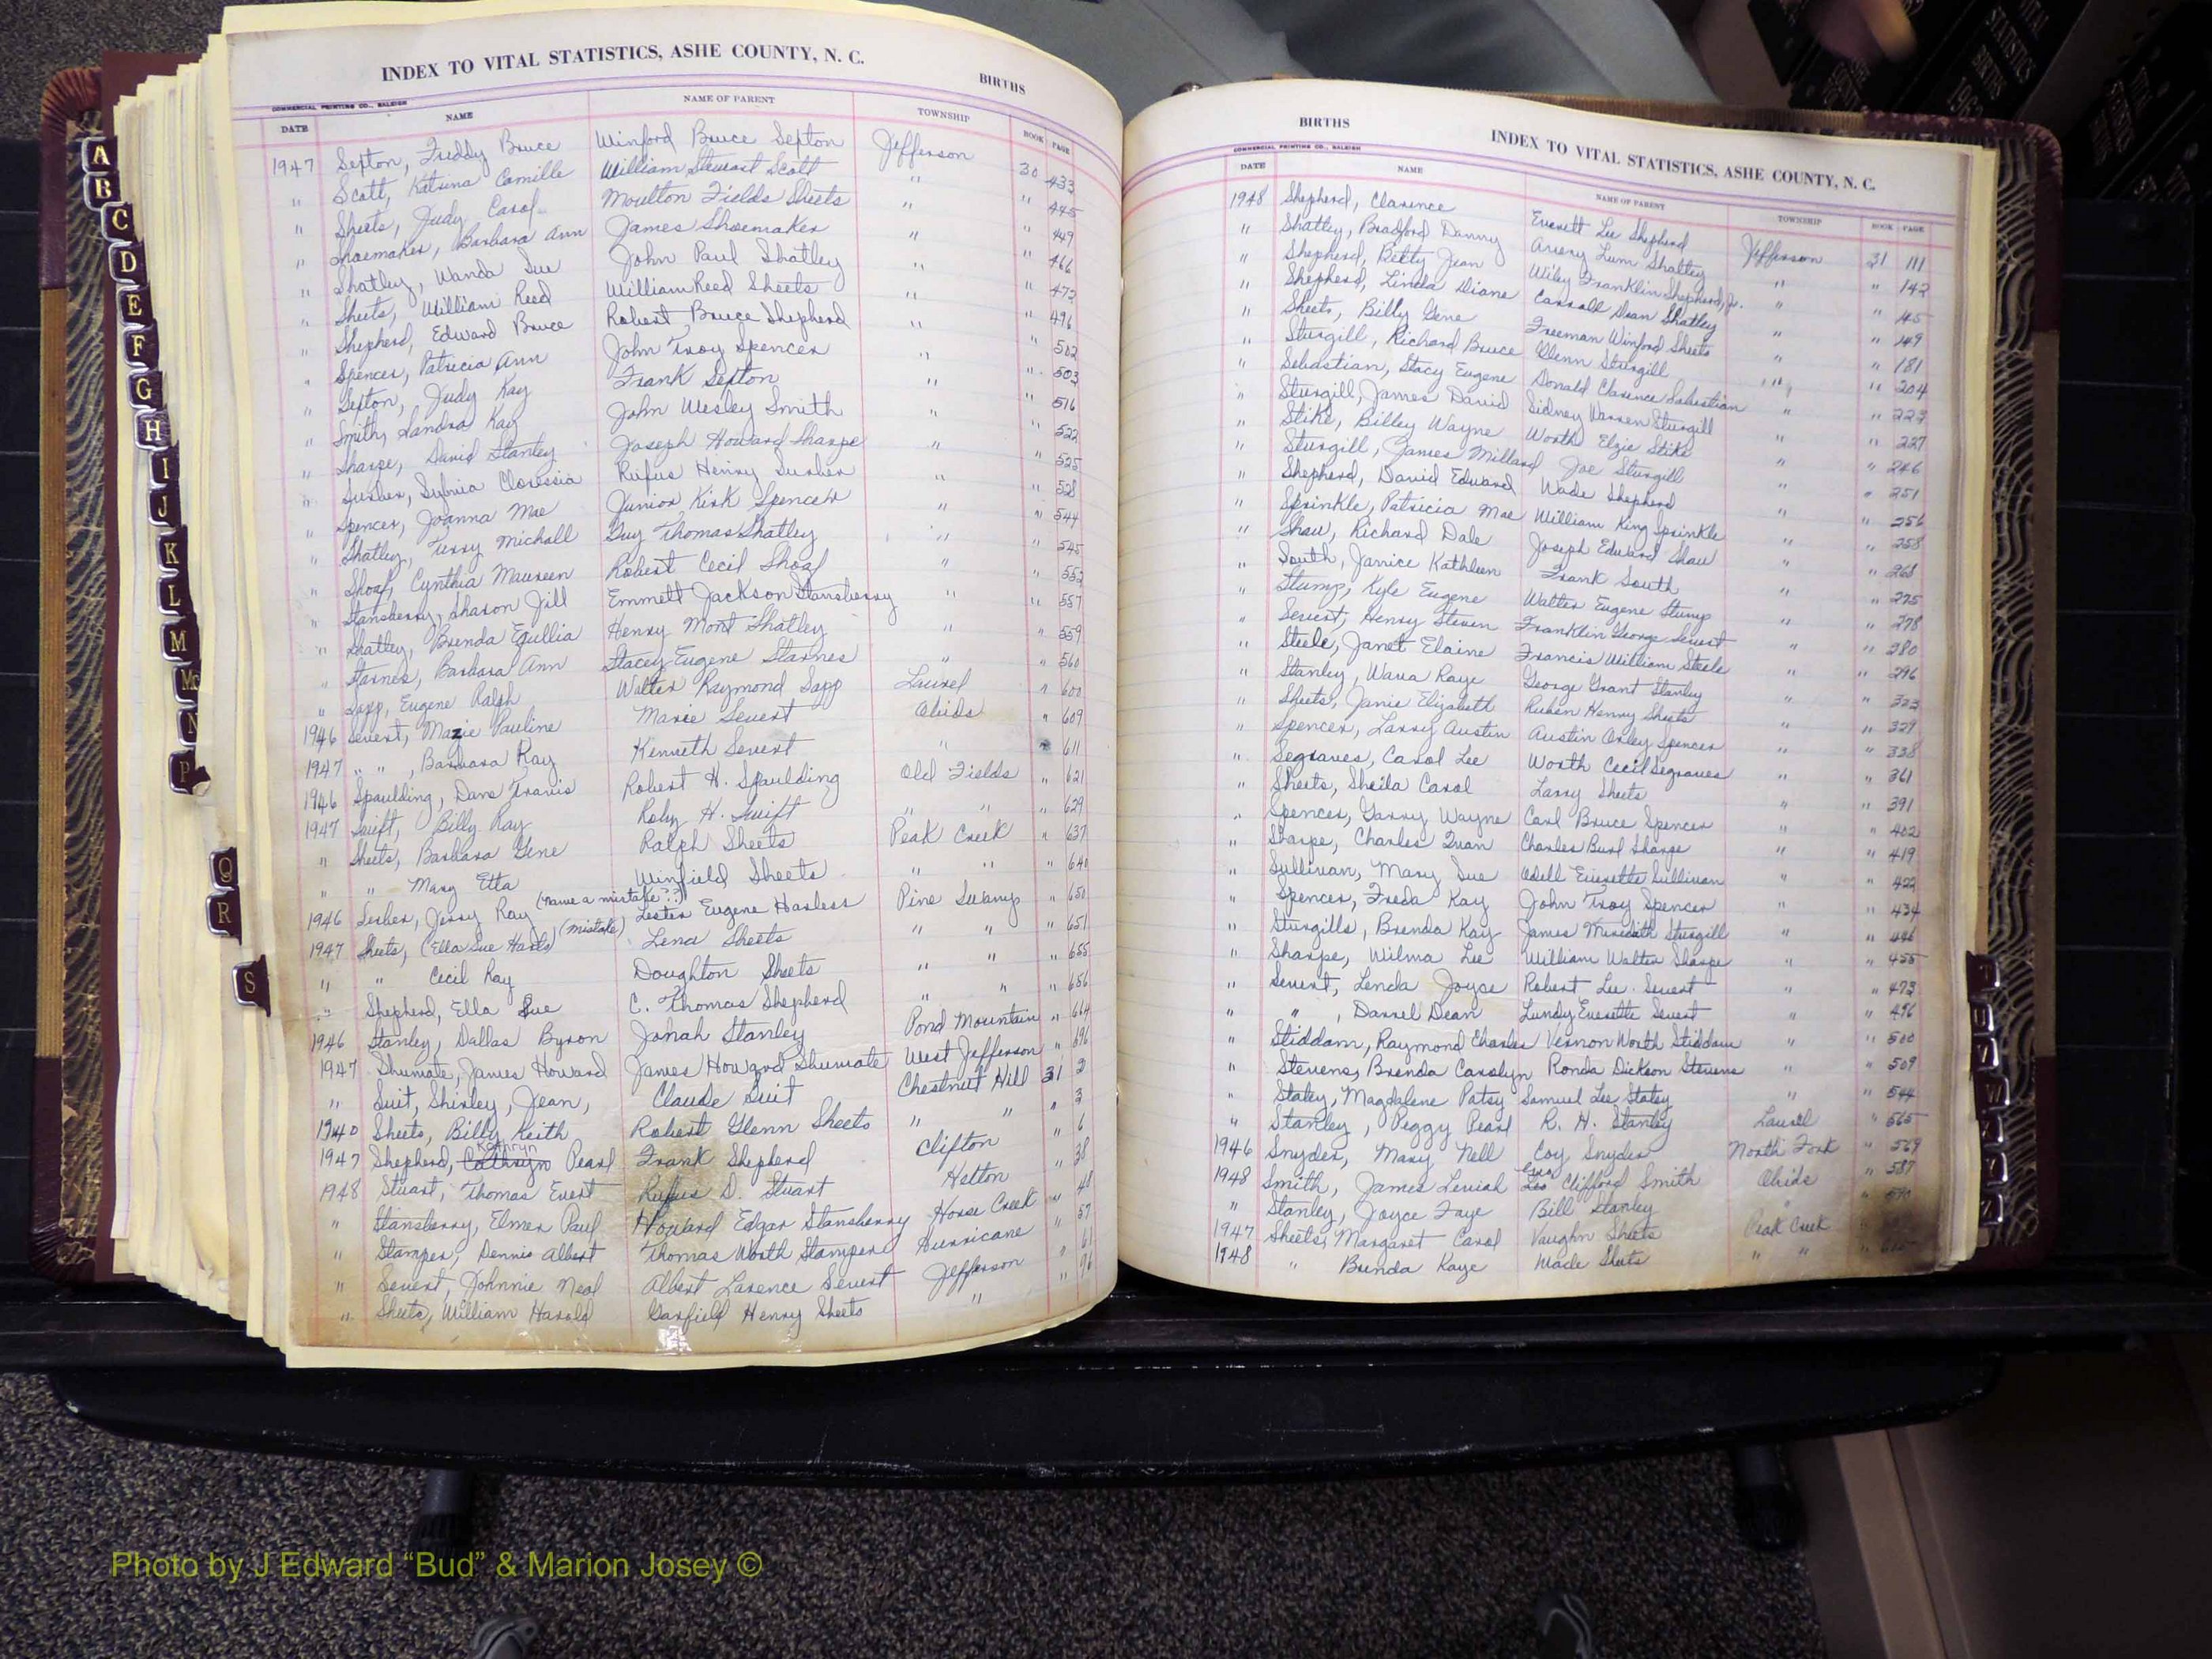 INDEX TO VITAL STATISTICS, ASHE COUNTY, N. C.
BIRTHS
COMMERCIAL PRINTING CO., RALEIGH
DATE NAME NAME OF PARENT TOWNSHIP BOOK PAGE
1947 Sexton, Freddy Bruce Winford Bruce Sexton Jefferson 30 433
" Scott, Katrina Camille William Stewart Scott " " 445
" Sheets, Judy Carol Moulton Fields Sheets " " 449
" Shoemaker, Barbara Ann James Shoemaker " " 466
" Shatley, Wanda Sue John Paul Shatley " " 472
" Sheets, William Reed William Reed Sheets " " 496
" Shepherd, Edward Bruce Robert Bruce Shepherd " " 502
" Spencer, Patricia Ann John Troy Spencer " " 503
" Sexton, Judy Kay Frank Sexton " " 516
" Smith, Sandra Kay John Wesley Smith " " 522
" Sharpe, David Stanley Joseph Howard Sharpe " " 525
" Surber, Sylvia Rufus Henry Surber " " 528
" Spencer, Joanna Mae Junior Kirk Spencer " " 544
" Shatley, Terry Michall Guy Thomas Shatley " " 545
" Shoaf, Cynthia Maureen Robert Cecil Shoaf " " 552
" Stansberry, Sharon Jill Emmett Jackson Stansberry " " 557
" Shatley, Brenda Henry Mont Shatley " " 559
" Starnes, Barbara Ann Stacey Eugene Starnes " " 560
" Sapp, Eugene Ralph Walter Raymond Sapp Laurel " 600
1946 Severt, Mazie Pauline Marie Severt Obids " 609
1947 " " , Barbara Kay Kenneth Severt " " 611
1946 Spaulding, Dans Travis Robert H. Spaulding Old Fields " 621
1947 Swift, Billy Ray Roby H. Swift " " " 629
" Sheets, Barbara Gene Ralph Sheets Peak Creek " 637
" " Mary Etta Winfield Sheets " " " 641
1946 Jerry Ray (name a mistake??) Lester Eugene Harless Pine Swamp " 650
1947 Sheets, (Ella Sue Harts) (mistake) Lena Sheets " " " 651
" " Cecil Ray Doughton Sheets " " " 655
" Shepherd, Ella Sue C. Thomas Shepherd " " " 656
1946 Stanley, Dallas Byron Jonah Stanley Pond Mountain " 664
1947 Shumate, James Howard James Howard Shumate West Jefferson " 696
" Suit, Shirley, Jean, Claude Suit Chestnut Hill 31 2
1940 Sheets, Billy Keith Robert Glenn Sheets " " " 3
1947 Shepherd, Cathryn Kathryn Pearl Frank Shepherd Clifton " 6
1948 Stuart, Thomas Evert Rufus D. Stuart Helton " 38
" Stansberry, Elmer Paul Howard Edgar Stansberry Horse Creek " 48
" Stamper, Dennis Albert Thomas Worth Stamper Hurricane " 57
" Severt, Johnnie Neal Albert Larence Severt Jefferson " 61
" Sheets, William Harold Garfield Henry Sheets " " 96
BIRTHS
INDEX TO VITAL STATISTICS, ASHE COUNTY, N. C.
COMMERCIAL PRINTING CO., RALEIGH
DATE NAME NAME OF PARENT TOWNSHIP BOOK PAGE
1948 Shepherd, Clarence Everett Lee Shepherd Jefferson 31 111
" Shatley, Bradford Danny Avery Lum Shatley " " 142
" Shepherd, Betty Jean Wiley Franklin Shepherd, Jr. " " 145
" Shepherd, Linda Diane Carroll Dean Shatley " " 149
" Sheets, Billy Gene Freeman Winford Sheets " " 181
" Sturgill, Richard Bruce Glenn Sturgill " " 204
" Sebastian, Stacy Eugene Donald Clarence Sebastian " " 223
" Sturgill, James David Sidney Warren Sturgill " " 227
" Stike, Billey Wayne Worth Elzie Stike " " 246
" Sturgill, James Millard Joe Sturgill " " 251
" Shepherd, David Edward Wade Shepherd " " 256
" Sprinkle, Patricia Mae William King Sprinkle " " 258
" Shaw, Richard Dale Joseph Edward Shaw " " 268
" South, Janice Kathleen Frank South " " 275
" Stump, Kyle Eugene Walter Eugene Stump " " 278
" Severt, Henry Steven Franklin George Severt " " 280
" Steele, Janet Elaine Francis William Steele " " 296
" Stanley, Wana Raye George Grant Stanley " " 323
" Sheets, Janie Elizabeth Ruben Henry Sheets " " 327
" Spencer, Larry Austin Austin Oxley Spencer " " 338
" Segraves, Carol Lee Worth Cecil Segraves " " 361
" Sheets, Sheila Carol Larry Sheets " " 391
" Spencer, Garry Wayne Carl Bruce Spencer " " 402
" Sharpe, Charles Ivan Charles Burl Sharpe " " 419
" Sullivan, Mary Sue Odell Everette Sullivan " " 422
" Spencer, Freda Kay John Troy Spencer " " 434
" Sturgills, Brenda Kay James Meredith Sturgill " " 446
" Sharpe, Wilma Lee William Walter Sharpe " " 455
" Severt, Lenda Joyce Robert Lee Severt " " 473
" " , Darrel Dean Lundy Everette Severt " " 496
" Stiddam, Raymond Charles Vernon Worth Stiddam " " 500
" Stevens, Brenda Carolyn Ronda Dickson Stevens " " 509
" Staley, Magdalene Patsy Samuel Lee Staley " " 544
" Stanley, Peggy Pearl R. H. Stanley Laurel " 565
1946 Snyder, Mary Nell Coy Snyder North Fork " 569
1948 Smith, James Leviah Clifford Smith Obids " 587
" Stanley, Joyce Faye Bill Stanley " " 590
1947 Sheets, Margaret Carol Vaughn Sheets Peak Creek "
1948 " Brenda Kaye Wade Sheets " " "
A
B
C
D
E
F
G
H
I
J
K
L
M
Mc
N
P
Q
R
S
T
U
V
W
Y
Z
VITAL STATISTICS BIRTHS
Photo by J Edward “Bud” & Marion Josey ©